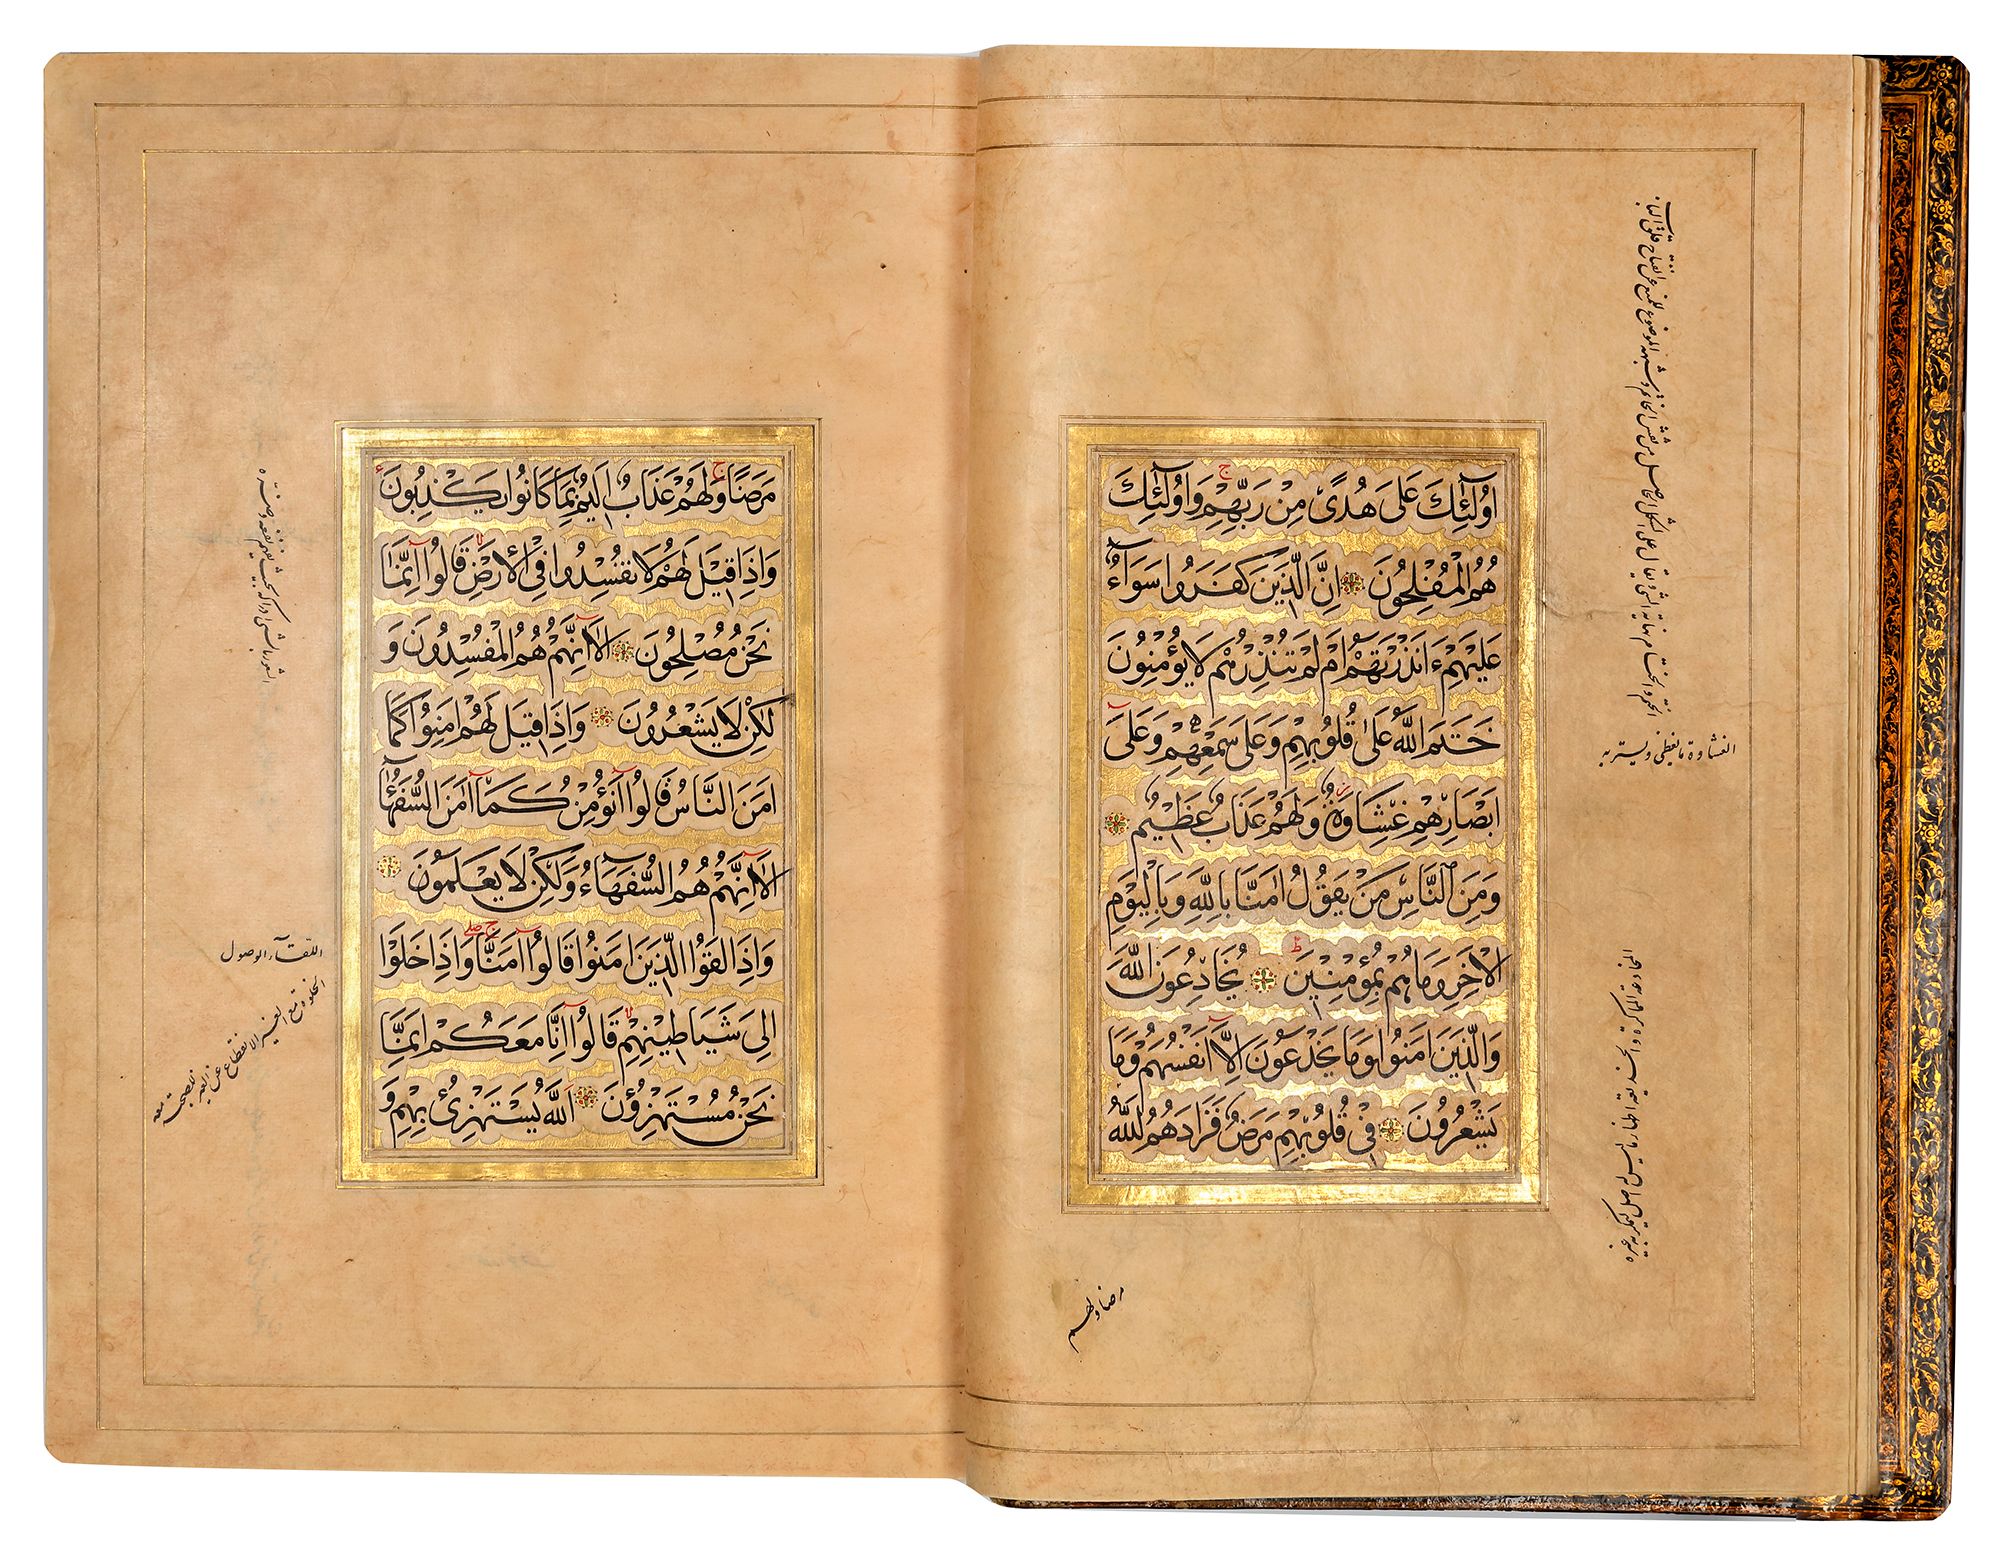 اُولٰئِكَ عَلٰى هُدًى مِنْ رَبِّهِمْ وَاُولٰئِكَ
هُمُ الْمُفْلِحُونَ اِنَّ الَّذِينَ كَفَرُوا سَوَآءٌ
عَلَيْهِمْ ءَاَنْذَرْتَهُمْ اَمْ لَمْ تُنْذِرْهُمْ لَا يُؤْمِنُونَ
خَتَمَ اللّٰهُ عَلٰى قُلُوبِهِمْ وَعَلٰى سَمْعِهِمْ وَعَلٰٓى
اَبْصَارِهِمْ غِشَاوَةٌ وَلَهُمْ عَذَابٌ عَظِيمٌ
وَمِنَ النَّاسِ مَنْ يَقُولُ اٰمَنَّا بِاللّٰهِ وَبِالْيَوْمِ
الْاٰخِرِ وَمَا هُمْ بِمُؤْمِنِينَ يُخَادِعُونَ اللّٰهَ
وَالَّذِينَ اٰمَنُوا وَمَا يَخْدَعُونَ اِلَّآ اَنْفُسَهُمْ وَمَا
يَشْعُرُونَ فِى قُلُوبِهِمْ مَرَضٌ فَزَادَهُمُ اللّٰهُ
الغشاوة ما يغطى ويستر به
مرضا ولهم
مَرَضًا وَلَهُمْ عَذَابٌ اَلِيمٌ بِمَا كَانُوا يَكْذِبُونَ
وَاِذَا قِيلَ لَهُمْ لَا تُفْسِدُوا فِى الْاَرْضِ قَالُوٓا اِنَّمَا
نَحْنُ مُصْلِحُونَ اَلَآ اِنَّهُمْ هُمُ الْمُفْسِدُونَ وَ
لٰكِنْ لَا يَشْعُرُونَ وَاِذَا قِيلَ لَهُمْ اٰمِنُوا كَمَآ
اٰمَنَ النَّاسُ قَالُوٓا اَنُؤْمِنُ كَمَآ اٰمَنَ السُّفَهَآءُ
اَلَآ اِنَّهُمْ هُمُ السُّفَهَآءُ وَلٰكِنْ لَا يَعْلَمُونَ
وَاِذَا لَقُوا الَّذِينَ اٰمَنُوا قَالُوٓا اٰمَنَّا وَاِذَا خَلَوْا
اِلٰى شَيَاطِينِهِمْ قَالُوٓا اِنَّا مَعَكُمْ اِنَّمَا
نَحْنُ مُسْتَهْزِؤُنَ اَللّٰهُ يَسْتَهْزِئُ بِهِمْ وَ
اللقآء الوصول